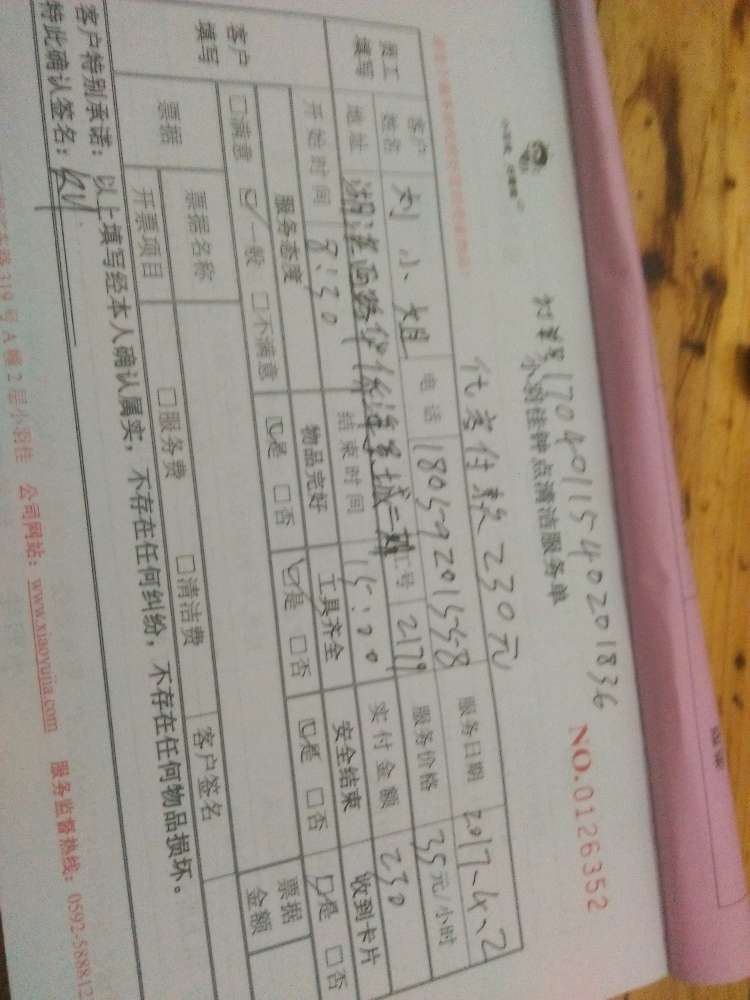 订单号170401154020 1836
小羽佳钟点清洁服务单
NO.0126352
代老付款230元
员工填写
客户姓名 刘小姐 电话 18059201558 服务日期 2017、4、2
地址 湖滨西路 二期 工号 2179 服务价格 35元/小时
开始时间 8:30 结束时间 15:00 实付金额 230
客户填写
服务态度 物品完好 工具齐全 安全结束 收到卡片
□满意 ☑一般 □不满意 ☑是 □否 ☑是 □否 ☑是 □否 ☑是 □否
票据 票据名称 □服务费 □清洁费 客户签名 票据金额
开票项目
客户特别承诺：以上填写经本人确认属实，不存在任何纠纷，不存在任何物品损坏。
特此确认签名：
路319号A幢2层小羽佳 公司网站：www.xiaoyujia.com 服务监督热线：0592-588812